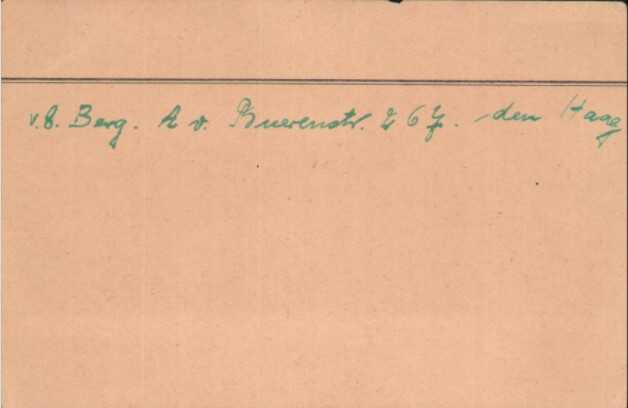 v.d. Berg. A v. Buerenstr. 267. den Haag